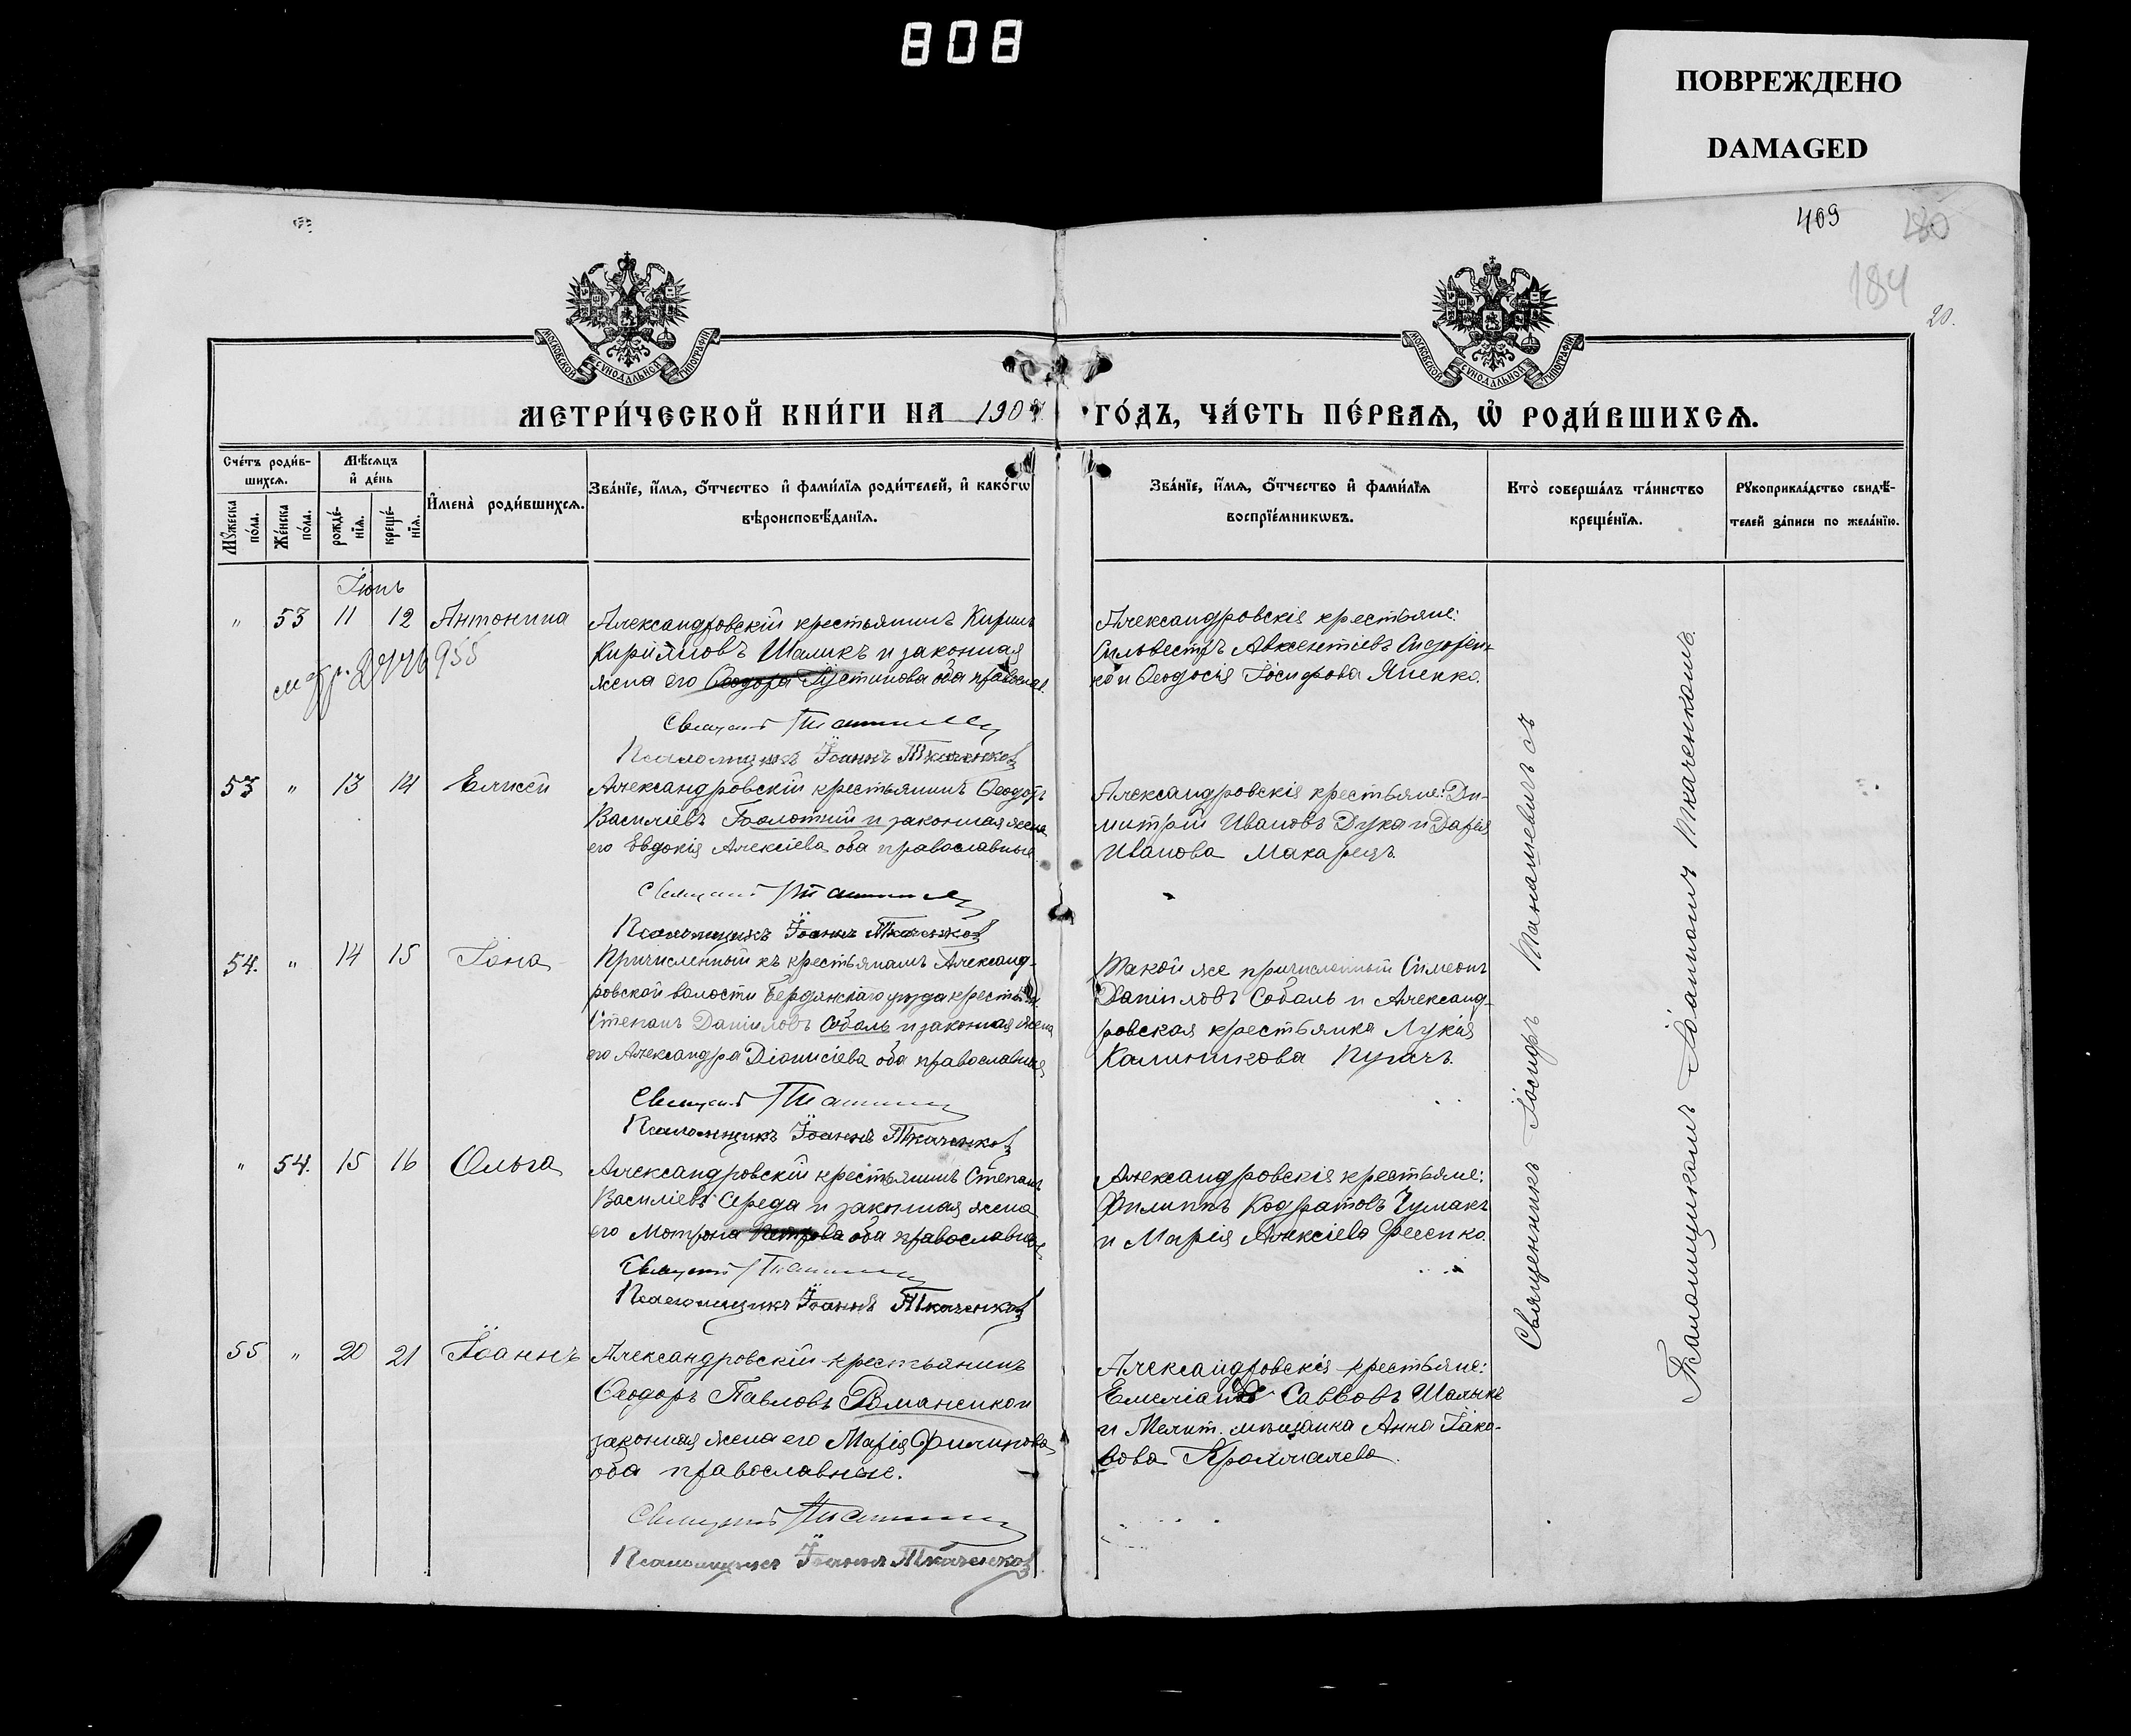 808
ПОВРЕЖДЕНО
DAMAGED
409
180
184
20.
МОСКОВСКОЙ СѴНОДАЛЬНОЙ ТИПОГРАФІИ
МОСКОВСКОЙ СѴНОДАЛЬНОЙ ТИПОГРАФІИ
МЕТРИ́ЧЕСКОЙ КНИ́ГИ НА 190
ГО́ДЪ, ЧА́СТЬ ПЕ́РВАѦ, Ѡ҆ РОДИ́ВШИХСѦ.
Сче́тъ роди́в-
шихсѧ.
Мѣ́сѧцъ
и҆ де́нь
Мꙋ́жеска по́ла.
Же́нска по́ла.
рожде́-нїѧ.
креще́-нїѧ.
И҆мена̀ роди́вшихсѧ.
Зва́нїе, и҆́мѧ, ѻ҆́тчество и҆ фами́лїѧ роди́телей, и҆ како́гѡ
вѣроисповѣ́данїѧ.
Зва́нїе, и҆́мѧ, ѻ҆́тчество и҆ фами́лїѧ
воспрїе́мникѡвъ.
Кто̀ соверша́лъ та́инство
креще́нїѧ.
Рꙋкоприкла́дство свидѣ́-
телей за́писи по жела́нїю.
Іюнь
" 53 11 12 Антонина
Александровскій крестьянинъ Кирилъ
Кирилловъ Шаликъ и законная
жена его Ѳеодора Іустинова оба православ.
Священникъ
Псаломщикъ Іоаннъ Ткаченко
Александровскія крестьяне:
Сильвестръ Авксентіевъ Сидорен-
ко и Ѳеодосія Іосифова Яненко.
53 " 13 14 Елисей
Александровскій крестьянинъ Ѳеодотъ
Василіевъ Болотній и законная жена
его Евдокія Алексіева оба православные.
Священникъ
Псаломщикъ Іоаннъ Ткаченко
Александровскія крестьяне: Ди-
митрій Ивановъ Дука и Дарія
Иванова Макарецъ.
54. " 14 15 Іона
Причисленный къ крестьянамъ Александ-
ровской волости Бердянскаго уѣзда крестьян.
Стефанъ Даніиловъ Соболь и законная жена
его Александра Діонисіева оба православныя
Священникъ
Псаломщикъ Іоаннъ Ткаченко
Такой же причисленный Симеонъ
Даніиловъ Соболь и Александ-
ровская крестьянка Лукія
Калиникова Пугачъ.
" 54. 15 16 Ольга
Александровскій крестьянинъ Степанъ
Василіевъ Середа и законная жена
его Мотрона Петрова оба православные.
Священникъ
Псаломщикъ Іоаннъ Ткаченко
Александровскія крестьяне:
Филиппъ Кодратовъ Чумакъ
и Марія Алексіева Фесенко.
55 " 20 21 Іоаннъ
Александровскій крестьянинъ
Ѳеодоръ Павловъ Романенко и
законная жена его Марія Филипова
оба православные.
Священникъ
Псаломщикъ Іоаннъ Ткаченко
Александровскія крестьяне:
Емеліанъ Саввовъ Шалыкъ
и Мелит. мѣщанка Анна Іако-
вова
Священникъ Іосифъ Танашевичъ съ
Псаломщикомъ Іоанномъ Ткаченкомъ.